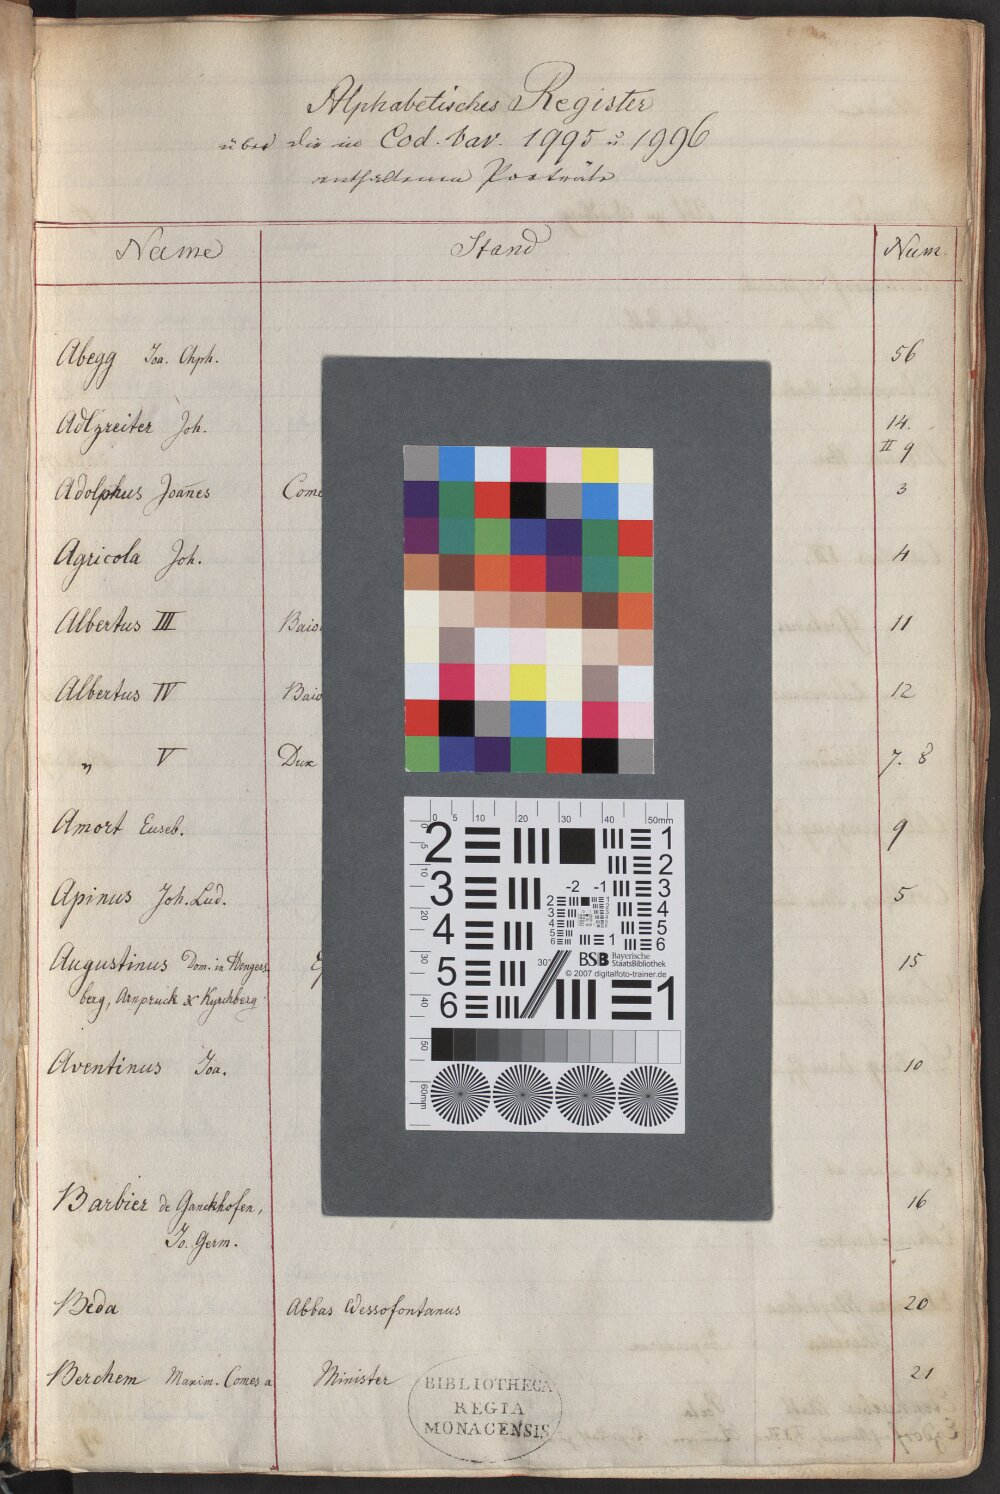 Alphabetisches Register
über die in Cod. bav. 1995 u 1996
enthaltenen Porträte
Name Stand Num.
Abegg Joa. Chph. 56
Adlzreiter Joh. 14.
II 9
Adolphus Joañes Come 3
Agricola Joh. 4
Albertus III Baio 11
Albertus IV Baio 12
„ V Dux 7. 8
Amort Euseb. 9
Apinus Joh. Lud. 5
Augustinus Dom. in Hengers 15
berg, Arnpruck & Kyrchberg
Aventinus Joa. 10
Barbier de Ganckhofen, 16
Jo. Germ.
Beda Abbas Wessofontanus 20
Berchem Maxim. Comes a Minister 21
BIBLIOTHECA
REGIA
MONACENSIS
0 5 10 20 30 40 50mm
2 1
2
3 3
4 4
5
6
5
6 1
-2 -1
BSB Bayerische
StaatsBibliothek
© 2007 digitalfoto-trainer.de
5 10 20 30 40 50 60mm